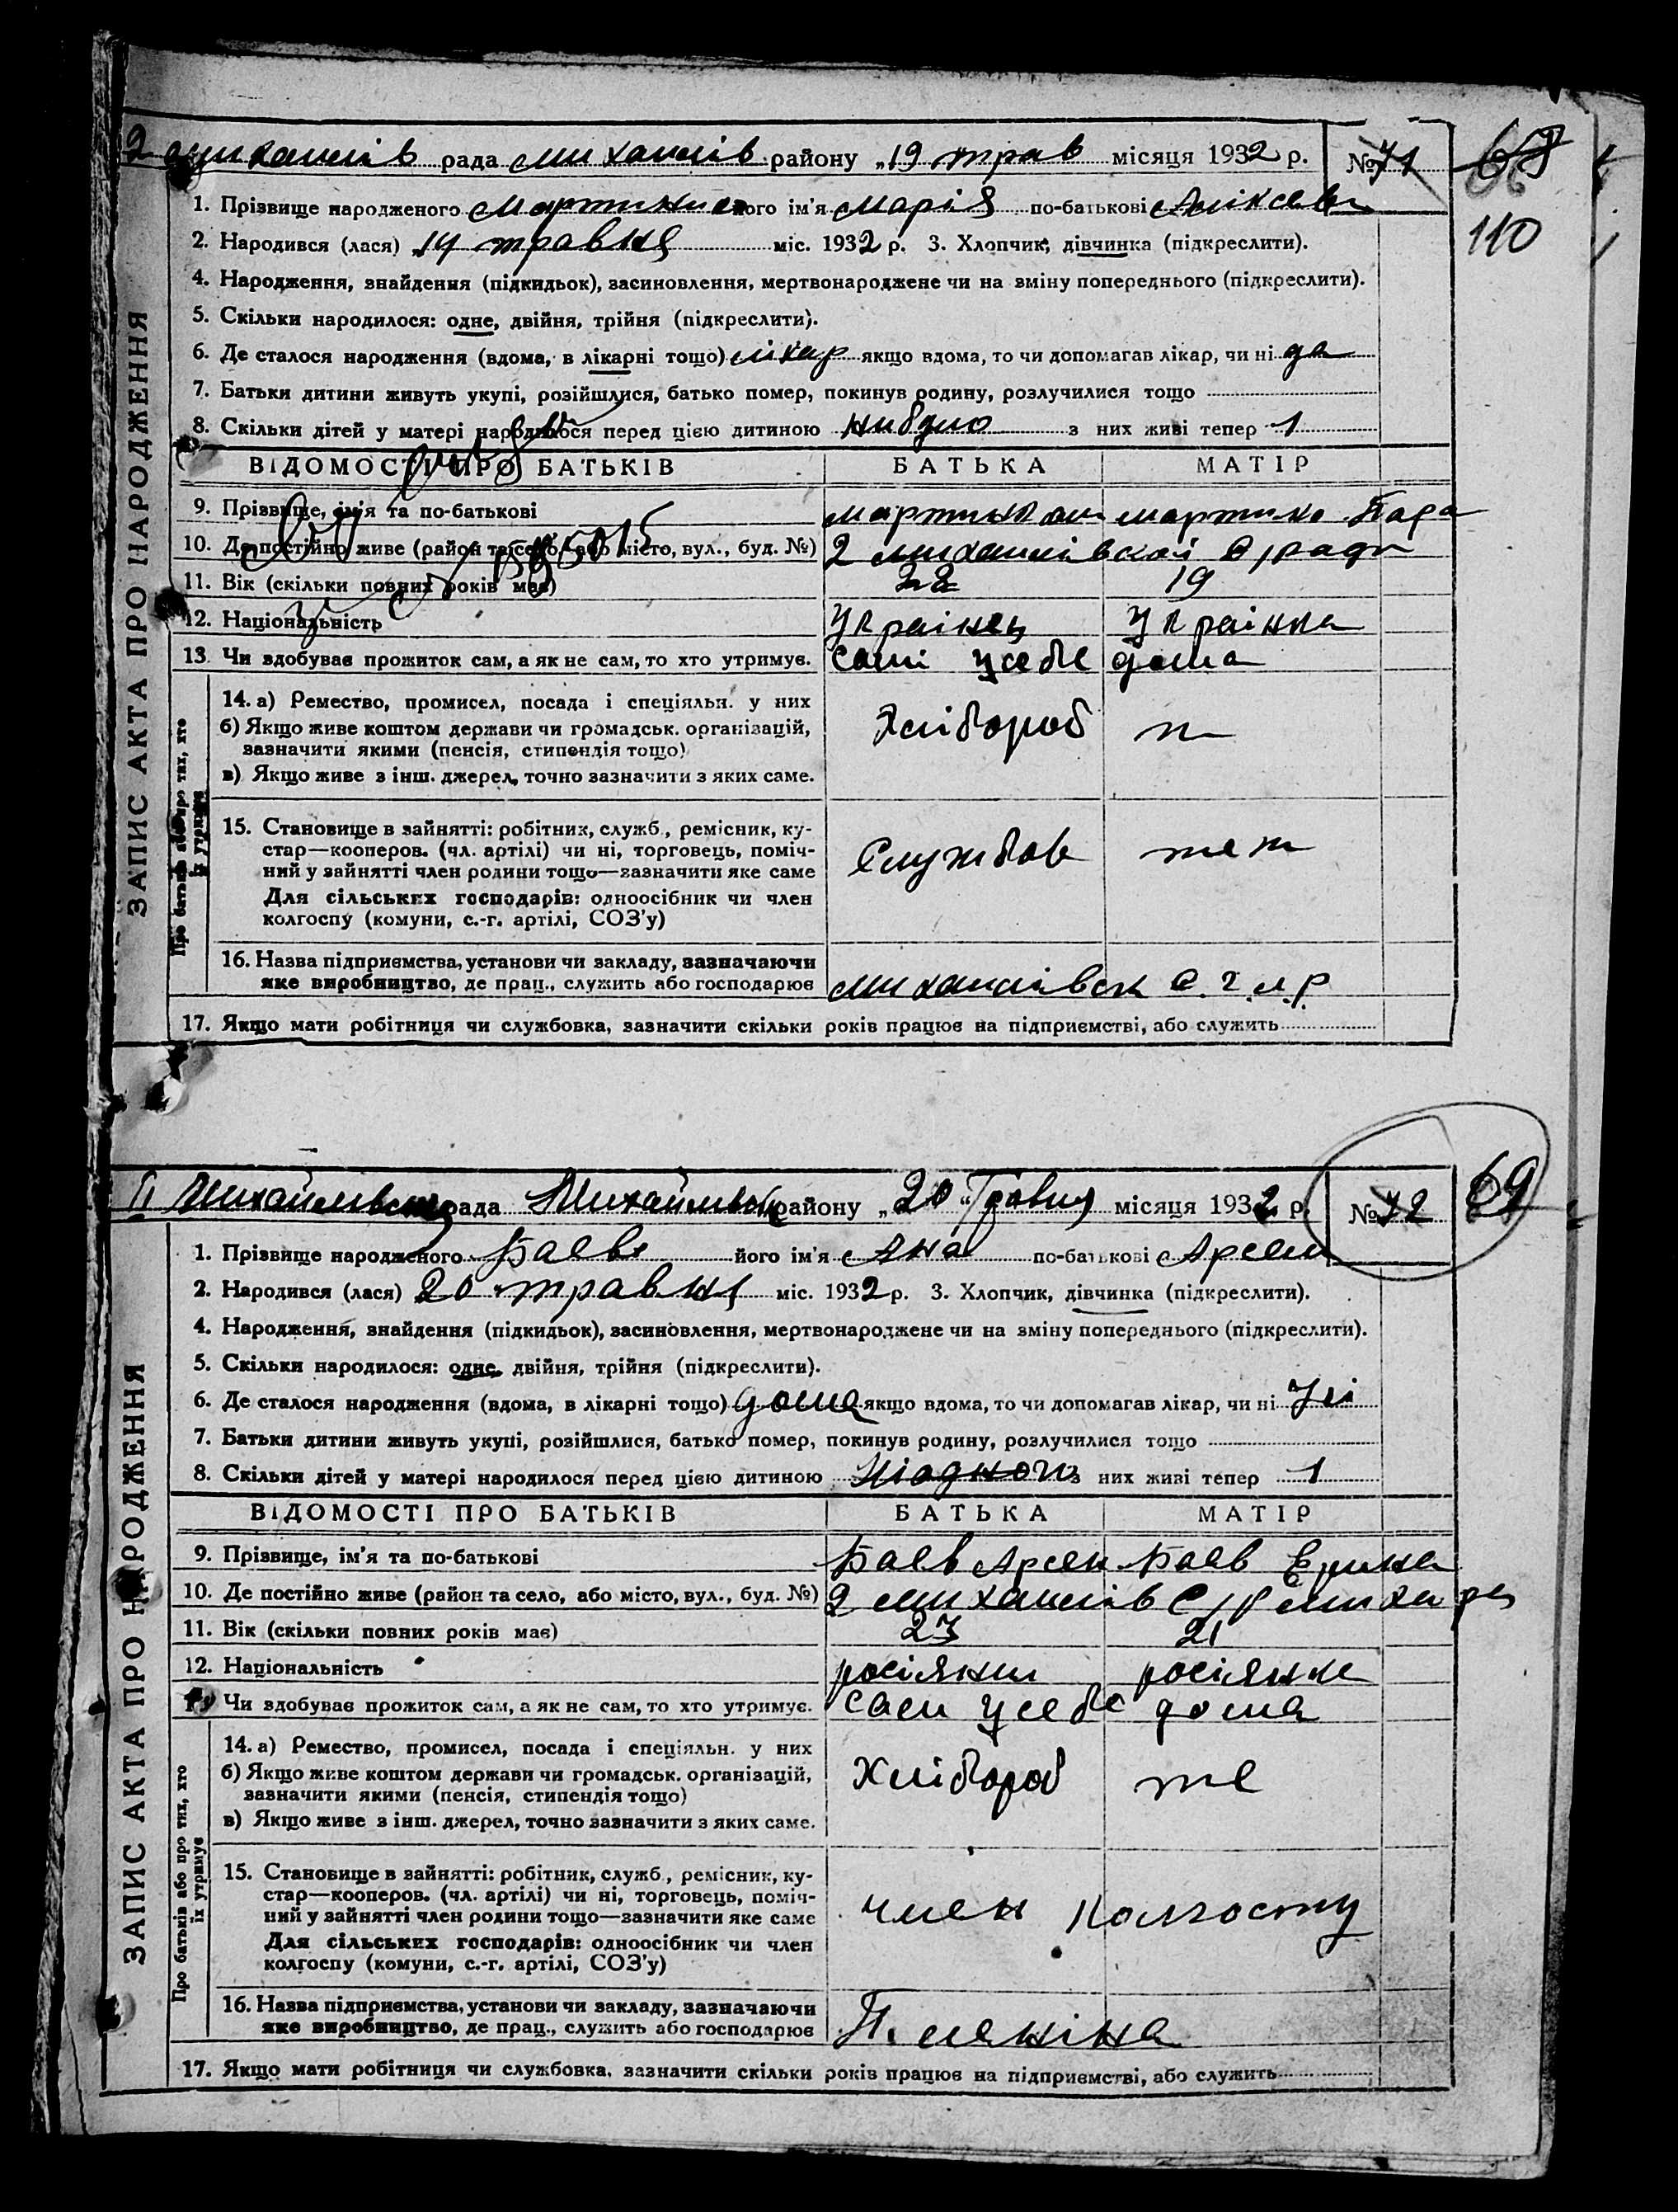 2 михайлів рада михайлів району „19 трав місяця 1932 р. № 71 68
110
1. Прізвище народженого Мартинко його ім'я Марія по-батькові Аліксєв
2. Народився (лася) 14 травня міс. 1932 р. 3. Хлопчик, дівчинка (підкреслити).
4. Народження, знайдення (підкидьок), засиновлення, мертвонароджене чи на зміну попереднього (підкреслити).
5. Скільки народилося: одне, двійня, трійня (підкреслити).
6. Де сталося народження (вдома, в лікарні тощо) лікар якщо вдома, то чи допомагав лікар, чи ні да
7. Батьки дитини живуть укупі, розійшлися, батько помер, покинув родину, розлучилися тощо
8. Скільки дітей у матері народилося перед цією дитиною з них живі тепер 1
ВІДОМОСТІ ПРО БАТЬКІВ БАТЬКА МАТІР
9. Прізвище, ім'я та по-батькові мартинко Пара
10. Де постійно живе (район та село, або місто, вул., буд. №) 2 михайлівской с/ради
11. Вік (скільки повних років має) 22 19
12. Національність Українец Українка
13. Чи здобуває прожиток сам, а як не сам, то хто утримує. самі у себе дома
14. а) Ремество, промисел, посада і спеціяльн. у них
б) Якщо живе коштом держави чи громадськ. організацій, Хлібороб т
зазначити якими (пенсія, стипендія тощо)
в) Якщо живе з інш. джерел, точно зазначити з яких саме.
15. Становище в зайнятті: робітник, служб., ремісник, ку-
стар—кооперов. (чл. артілі) чи ні, торговець, поміч- Службов теж
ний у зайнятті член родини тощо—зазначити яке саме
Для сільських господарів: одноосібник чи член
колгоспу (комуни, с.-г. артілі, СОЗ'у)
16. Назва підприємства, установи чи закладу, зазначаючи
яке виробництво, де прац., служить або господарює михайлівск
17. Якщо мати робітниця чи службовка, зазначити скільки років працює на підприємстві, або служить
ЗАПИС АКТА ПРО НАРОДЖЕННЯ
Про батьків або про тих, хто їх утримує
П Михайлівська рада Михайлівськ району „20 “ Травня місяця 1932 р. № 72 69
1. Прізвище народженого Баєва його ім'я Ана по-батькові Арсен
2. Народився (лася) 20 травня міс. 1932 р. 3. Хлопчик, дівчинка (підкреслити).
4. Народження, знайдення (підкидьок), засиновлення, мертвонароджене чи на зміну попереднього (підкреслити).
5. Скільки народилося: одне, двійня, трійня (підкреслити).
6. Де сталося народження (вдома, в лікарні тощо) дома якщо вдома, то чи допомагав лікар, чи ні Ні
7. Батьки дитини живуть укупі, розійшлися, батько помер, покинув родину, розлучилися тощо
8. Скільки дітей у матері народилося перед цією дитиною ніодного з них живі тепер 1
ВІДОМОСТІ ПРО БАТЬКІВ БАТЬКА МАТІР
9. Прізвище, ім'я та по-батькові Баєв Арсен Баєв Ерина
10. Де постійно живе (район та село, або місто, вул., буд. №) 2 михайлів с/р миха рай
11. Вік (скільки повних років має) 23 21
12. Національність росіянин росіянка
13. Чи здобуває прожиток сам, а як не сам, то хто утримує. сам у себе дома
14. а) Ремество, промисел, посада і спеціяльн. у них
б) Якщо живе коштом держави чи громадськ. організацій, Хлібороб те
зазначити якими (пенсія, стипендія тощо)
в) Якщо живе з інш. джерел, точно зазначити з яких саме.
15. Становище в зайнятті: робітник, служб., ремісник, ку-
стар—кооперов. (чл. артілі) чи ні, торговець, поміч-
ний у зайнятті член родини тощо—зазначити яке саме член колгоспу
Для сільських господарів: одноосібник чи член
колгоспу (комуни, с.-г. артілі, СОЗ'у)
16. Назва підприємства, установи чи закладу, зазначаючи
яке виробництво, де прац., служить або господарює П. леніна
17. Якщо мати робітниця чи службовка, зазначити скільки років працює на підприємстві, або служить
ЗАПИС АКТА ПРО НАРОДЖЕННЯ
Про батьків або про тих, хто їх утримує